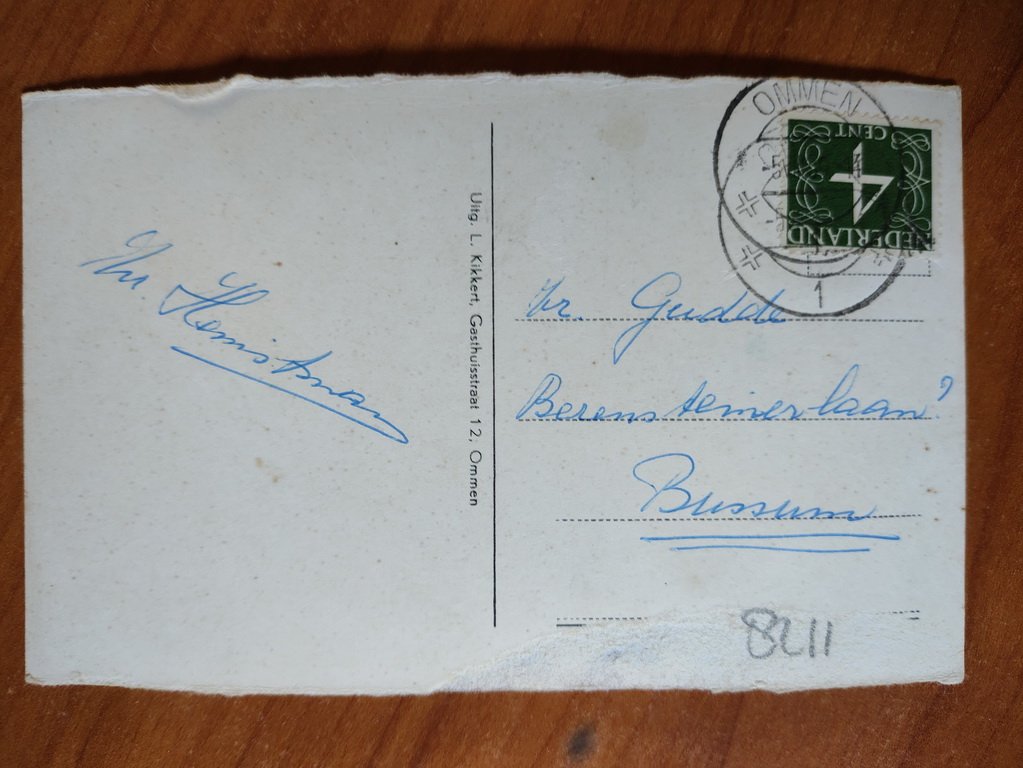 Hemstman
Uitg. L. Kikkert, Gasthuisstraat 12, Ommen
OMMEN
1
NEDERLAND
4
CENT
Gudde
Berensteinerlaan?
Bussum
8211